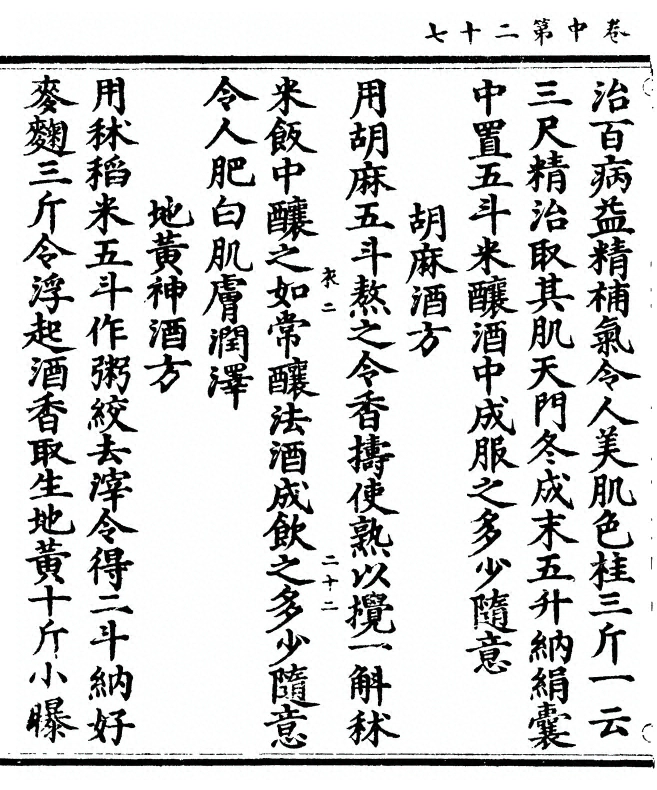 卷中第二十七
治百病益精補氣令人美肌色桂三斤一云
三尺精治取其肌天門冬成末五升納絹囊
中置五斗米釀酒中成服之多少隨意
胡麻酒方
用胡麻五斗熬之令香擣使熟以攪一斛秫
衣二
二十二
米飯中釀之如常釀法酒成飲之多少隨意
令人肥白肌膚潤澤
地黃神酒方
用秫稻米五斗作粥絞去滓令得二斗納好
麥麴三斤令浮起酒香取生地黃十斤小曝